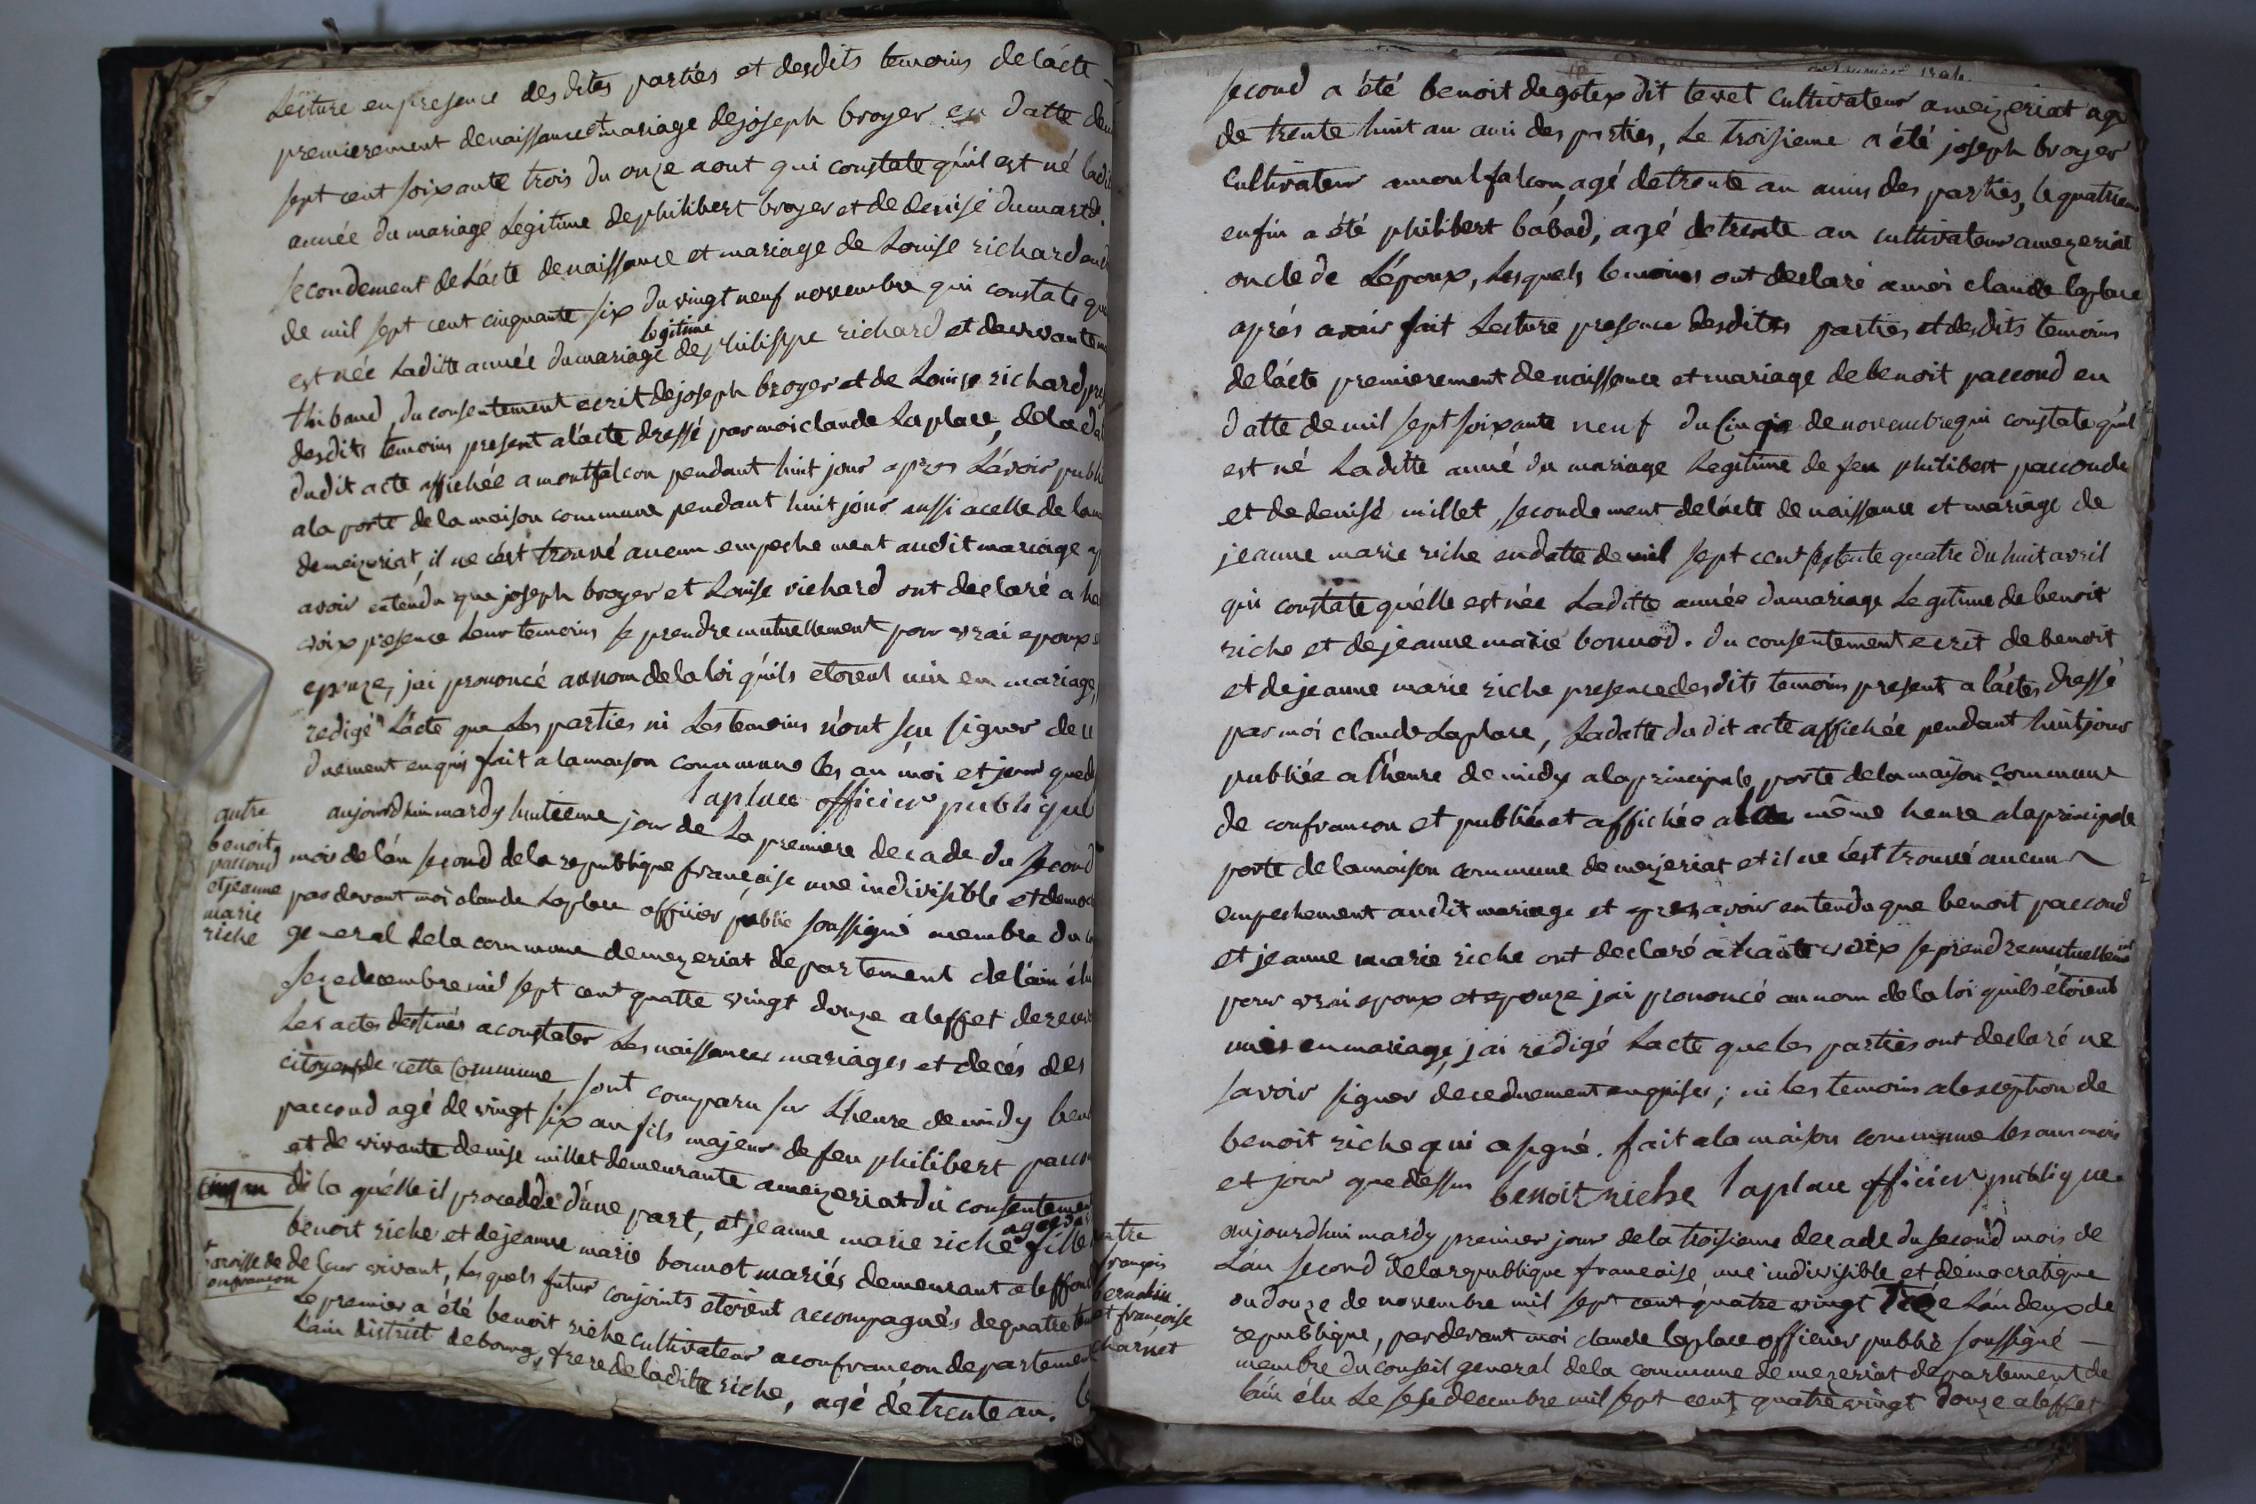 Lecture en presence des dites parties et desdits temoins de lácte
premierement de naissance et mariage de joseph broyer en datte de
sept cent soixante trois du onze aout qui constate qu'il est né ladi
année du mariage Legitime de philibert broyer et de denise dumard
secondement de Lácte de naissance et mariage de Louise richard
de mil sept cent cinquante six du vingt neuf novembre qui constate qu
est née Laditte année du mariage legitime de philippe richard et de vivante
thibaud, du consentement ecrit de joseph broyer et de Louise richard pres
desdits temoins present a lácte dressé par moi claude Laplace, de la da
dudit acte affichée a montfalcon pendant huit jour apres Lávoir publi
a la porte de la maison commune pendant huit jour aussi a celle de la
demeizeriat, il ne c'est trouvé aucun empeche ment audit mariage ap
avoir entendu que joseph broyer et Louise richard ont declaré a ha
voix presence Leur temoins se prendre mutuellement pour vrai epoux e
epouze, jai prononcé au nom de la loi qu'ils etoient uni en mariage,
redigé Lácte que Les parties ni Les temoins n'ont scu signer de ce
duement enquis fait a la maison commune les an moi et jour que de
laplace officier publique
autre
benoit
paccoud
et jeanne
marie
riche
aujourdhui mardy huitieme jour de La premiere decade du second
mois de lán second de la republique françoise une indivisible et democ
par devant moi claude Laplace officier public soussigné membre du
general de la commune de mezeriat departement de láin élu
seze decembre mil sept cent quatre vingt douze a leffet de recev
Les actes destinés a constater Les naissances mariages et decés des
citoyens de cette Commune sont comparu sur L'heure de midy beno
paccoud agé de vingt six an fils majeur de feu philibert pacco
et de vivante denise millet demeurante a mezeriat du consentemen
di la quélle il procedde d'une part, et jeanne marie riche agée de fille
benoit riche et de jeanne marie bonnot mariés demeurant a leffon
paroisse de
confrancon
de leur vivant, lesquels futur conjoints etoient accompagnés de quatre tem
Le premier a été benoit riche cultivateur a confrancon departement
Láin district de bourg, frere de laditte riche, agé de trente an. le
second a été benoit degotex dit tevet cultivateur a meizeriat agé
de trente huit an ami des parties, Le troisieme a été joseph broyer
cultivateur a montfalcon, agé de trente an amis des parties, le quatrieme
enfin a été philibert babad, agé de trente an cultivateur a mezeriat
oncle de Lépoux, Lesquels temoins ont declaré a moi claude laplace
aprés avoir fait Lecture presence desdittes parties et desdits temoins
de lácte premierement de naissance et mariage de benoit paccoud en
datte de mil sept soixante neuf du cinq de novembre qui constate qu'il
est né Laditte anné du mariage Legitime de feu philibert paccoud
et de denise millet, secondement de lácte de naissance et mariage de
jeanne marie riche en datte de mil sept cent septente quatre du huit avril
qui constate qu'élle est née Laditte année du mariage Legitime de benoit
riche et de jeanne marie bonnod. du consentement ecrit de benoit
et de jeanne marie riche presence desdits temoins present a láctes dressé
par moi claude Laplace, Ladatte du dit acte affichée pendant huit jour
publiée a l'heure de midy a la principale porte de la maison commune
de confrancon et publiée et affichée a la même heure a la principale
porte de la maison commune de mezeriat et il ne c'est trouvé aucun
empechement audit mariage et apres avoir entendu que benoit paccoud
et jeanne marie riche ont declaré a haute voix se prendre mutuellement
pour vrai epoux et epouze jai prononcé au nom de la loi qu'ils étoient
unis en mariage, jai redigé Lacte que les parties ont declaré ne
savoir signer de ce duement enquises; ni les temoins a lexception de
benoit riche qui a signé. fait a la maison commune les ans mois
et jour que dessus benoit riche laplace officier publique
autre
françois
bernolin
et françoise
charnet
aujourdhui mardy premier jour de la troisieme decade du second mois de
Lán second de la republique francaise une indivisible et democratique
ou douze de novembre mil sept cent quatre vingt Lán deux de
republique, par devant moi claude laplace officier public soussigné
membre du conseil general de la commune de mezeriat departement de
láin élu Le seze decembre mil sept cent quatre vingt douze a léffet